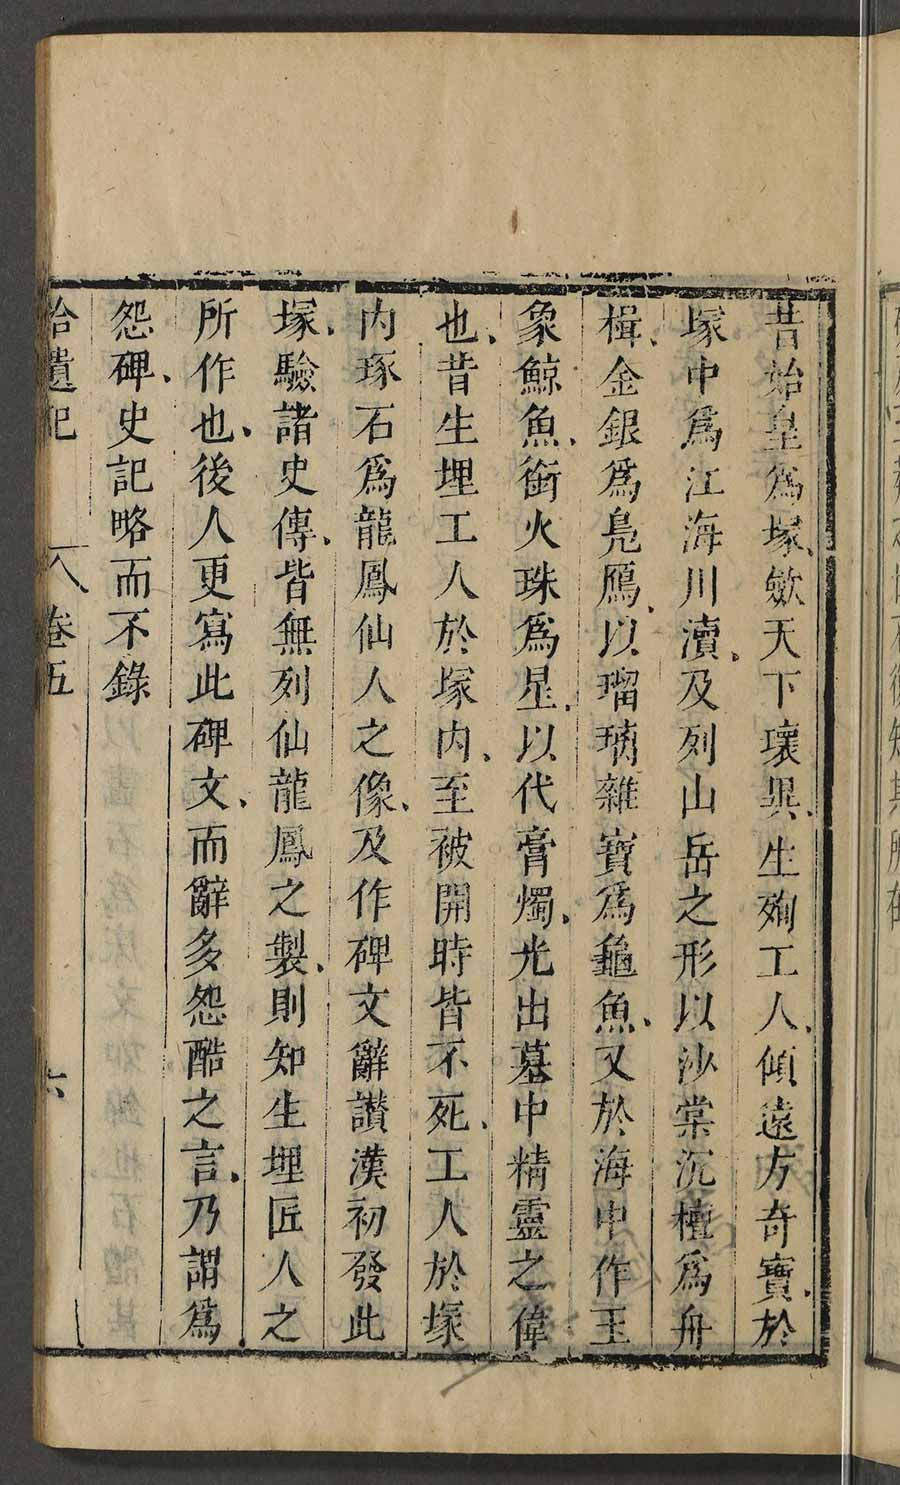 昔始皇爲塚、斂天下壞異、生殉工人、傾遠方奇寶、於
塚中爲江海川瀆、及列山岳之形以沙棠沉檀爲舟
楫、金銀爲鳧鴈、以瑠璃雜寶爲龜魚、又於海中作玉
象鯨魚、銜火珠爲星、以代膏燭、光出墓中精靈之偉
也、昔生埋工人於塚内、至被開時皆不死、工人於塚
内琢石爲龍鳳仙人之像、及作碑文辭讃漢初發此
塚、驗諸史傳、皆無列仙龍鳳之製、則知生埋匠人之
所作也、後人更寫此碑文、而辭多怨酷之言、乃謂爲
怨碑、史記略而不錄
拾遺記 卷五 六